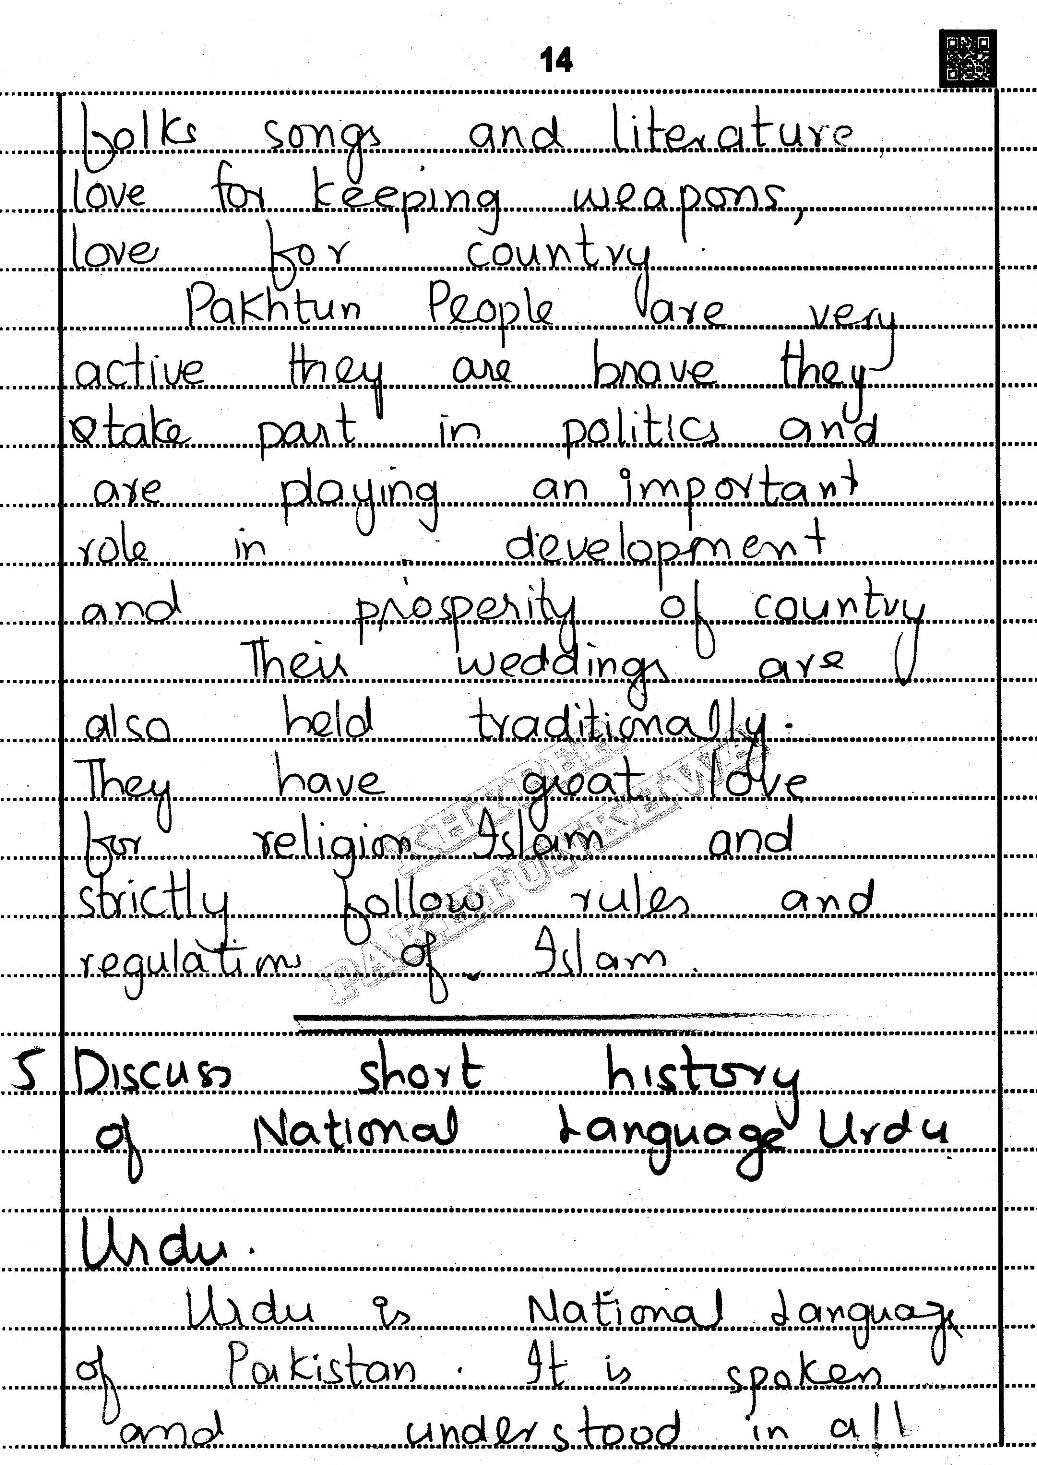 14
folks songs and literature,
love for keeping weapons,
love for country.
Pakhtun People are very
active they are brave they
take part in politics and
are playing an important
role in development
and prosperity of country
Their weddings are
also held traditionally.
They have great love
for religion Islam and
strictly follow rules and
regulations of Islam.
KHYBER
PAKHTUNKHWA
5 Discuss short history
of National Language Urdu
Urdu.
Urdu is National Language
of Pakistan. It is spoken
and understood in all